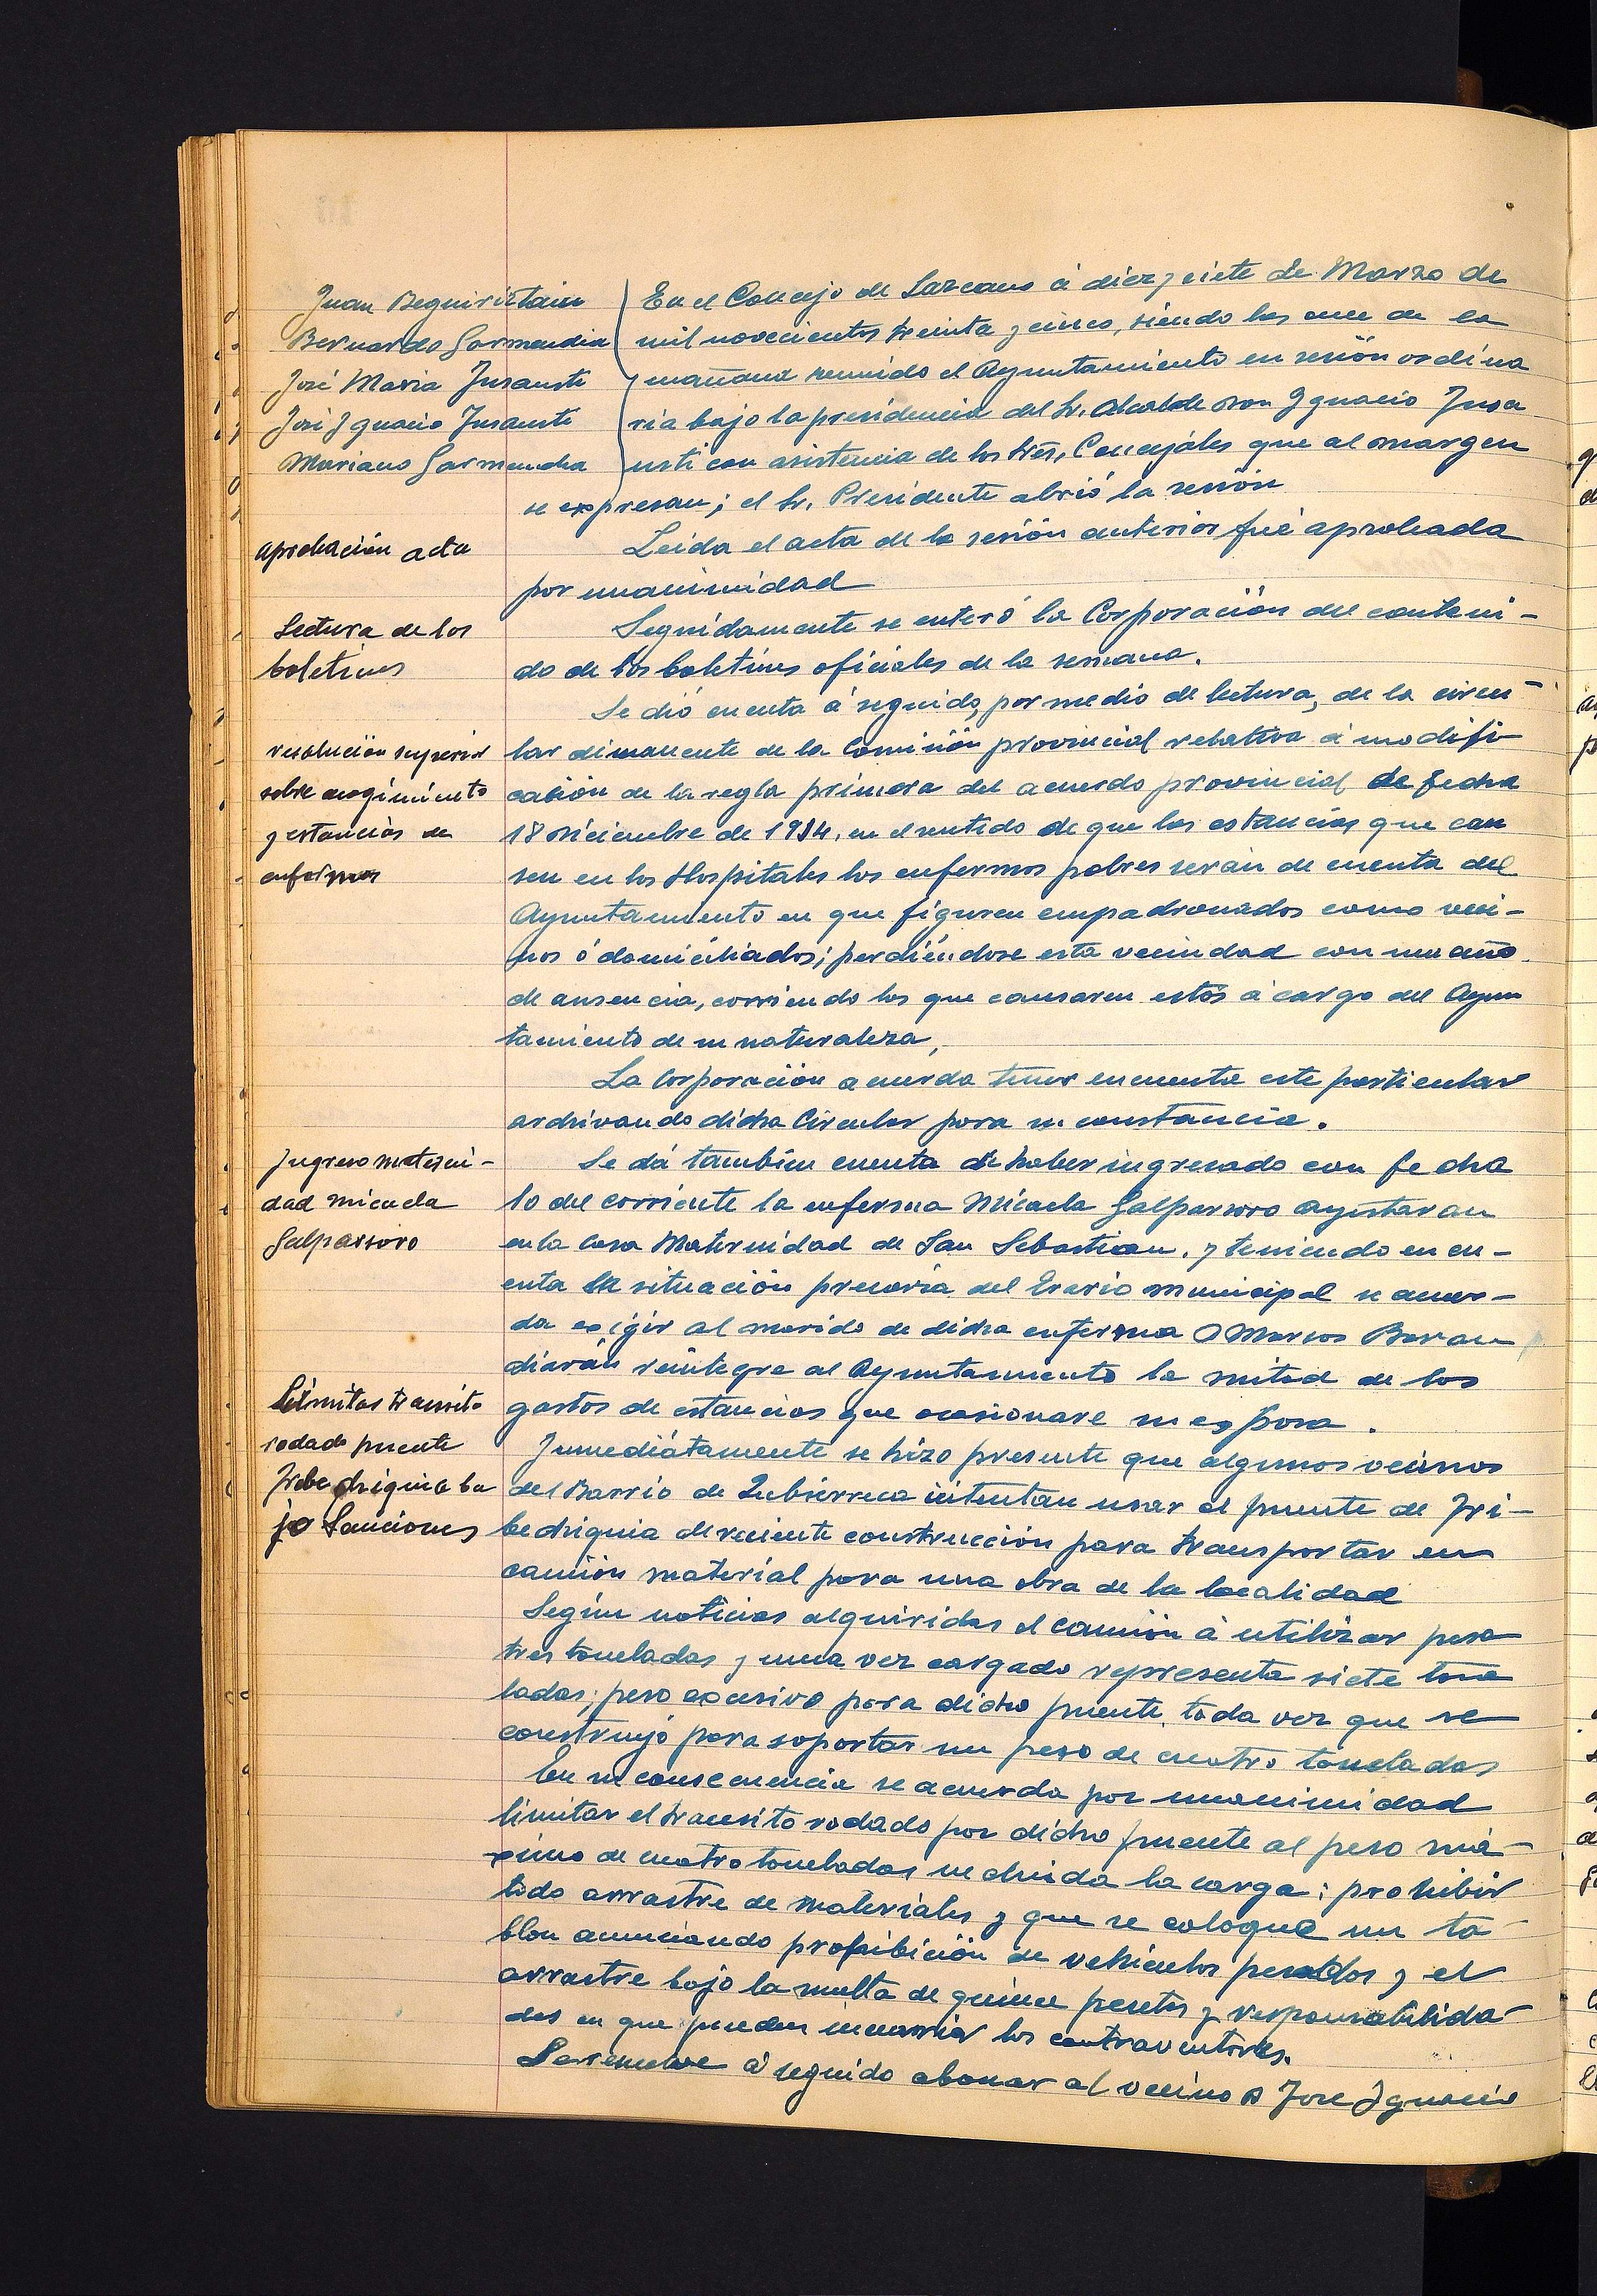 Juan Beguiristain
Bernardo Garmendia
José Maria Insausti
José Ignacio Insausti
Mariano Garmendia
En el Concejo de Lazcano á diez y siete de Marzo de
mil novecientos treinta y cinco, siendo las once de la
mañana reunido el Ayuntamiento en sesión ordina
ria bajo la presidencia del Sr. Alcalde Don Ignacio Insa
usti con asistencia de los Sres, Concejales que al margen
se expresan; el Sr. Presidente abrió la sesión
aprobación acta
Leida el acta de la sesión anterior fué aprobada
por unanimidad
Lectura de los
boletines
Seguidamente se enteró la Corporación del conteni-
do de los boletines oficiales de la semana.
resolución superior
sobre acogimiento
y estancias de
enfermos
Se dió cuenta á seguido, por medio de lectura, de la circu-
lar dimanente de la Comisión provincial relativa á modifi
cación de la regla primera del acuerdo provincial de fecha
18 Diciembre de 1934, en el sentido de que las estancias que cau
sen en los Hospitales los enfermos pobres serán de cuenta del
Ayuntamiento en que figuren empadronados como veci-
nos ó domiciliados; perdiéndose esta vecindad con un año
de ausencia, corriendo los que causaren estos á cargo del Ayun
tamiento de su naturaleza,
La Corporación acuerda tener en cuenta este particular
archivando dicha Circular para su constancia.
Ingreso materni-
dad Micaela
Galparsoro
Se dá tambien cuenta de haber ingresado con fecha
10 del corriente la enferma Micaela Galparsoro Ayestaran
en la Casa Maternidad de San Sebastian, y teniendo en cu-
enta la situación precaria del Erario municipal se acuer-
da exigir al marido de dicha enferma D Marcos Baran
diarán reintegre al Ayuntamiento la mitad de los
gastos de estancias que ocasionare su esposa.
Limitar transito
rodado puente
Iribedriguia ba
jo Sanciones
Inmediátamente se hizo presente que algunos vecinos
del Barrio de Zubierreca intentan usar el puente de Iri-
bedriguia de reciente construcción para transportar en
camión material para una obra de la localidad
Según noticias alquiridas el camión á utilizar pesa
tres toneladas y una vez cargado representa siete tone
ladas; peso excesivo para dicho puente, toda vez que se
construyó para soportar un peso de cuatro toneladas
En su consecuencia se acuerda por unanimidad
limitar el transito rodado por dicho puente al peso má-
ximo de cuatro toneladas incluida la carga; prohibir
todo arrastre de materiales y que se coloque un ta-
blon anunciando prohibición de vehiculos pesados y el
arrastre bajo la multa de quince pesetas y responsabilida-
des en que pueden incurrir los contraventores.
Se resuelve á seguido abonar al vecino D José Ignacio